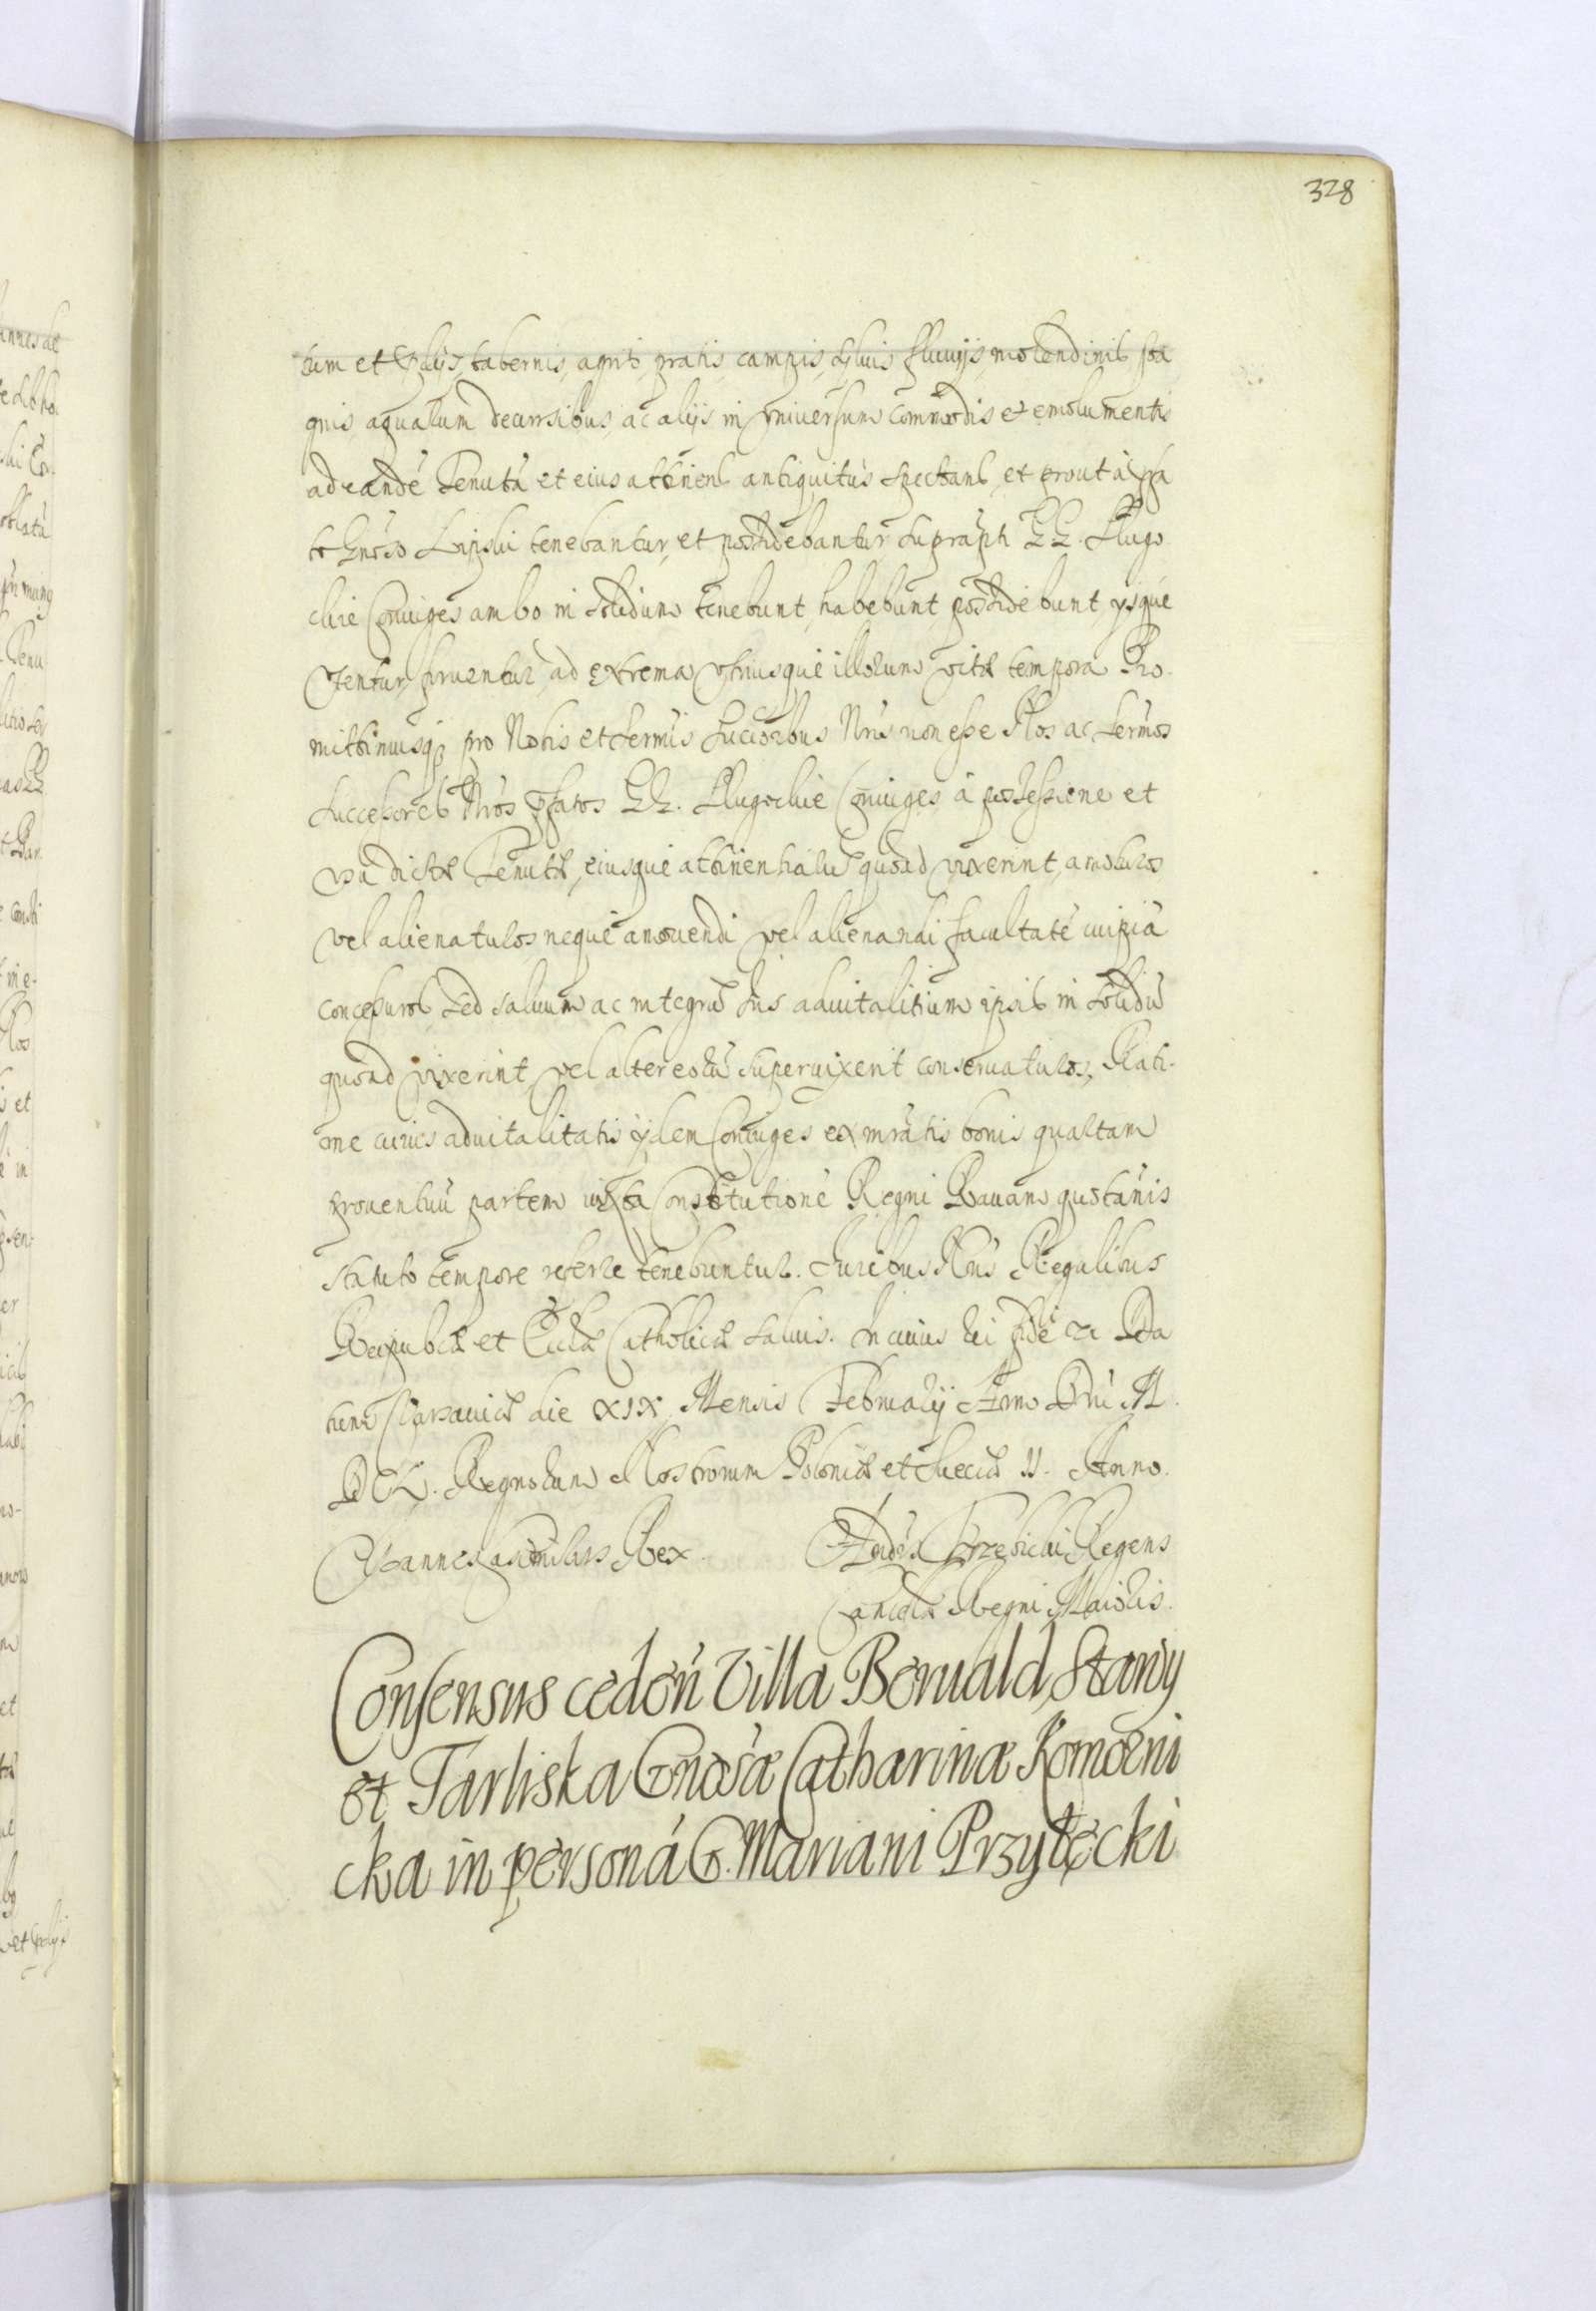 328
tum et alijs, tabernis, agris, pratis, campis, syluis fluuijs, molendinis sta
gnis aquarum decursibus, ac alijs in vniuersum commodis et emolumentis
ad eandē Tenutā et eius attinen antiquitus spectan, et prout à
to Gnōso Lipski tenebantur, et possidebantur supra GG. Dlugo
ckie Coniuges ambo in solidum tenebunt, habebunt, possidebunt, ysque
vtentur, fruentur, ad extrema vtriusque illorum vitæ tempora Pro
mittimusq; pro Nobis et Sermis Succōribus Nris non esse Nos ac Sermos
Successores Nros pfatos GG. Dlugockie Coniuges à possessione et
vsu dictæ Tenutæ, eiusque attinentiarū quoad vixerint, amoturos
vel alienaturos, neque amouendi vel alienandi facultatē cuipiā
concessuros Sed saluum ac integrū Ius aduitalitium ipsis in solidū
quoad vixerint, vel alter eorū superuixerit conseruaturos, Rati
one cuius aduitalitatis ijdem Coniuges ex mratis bonis quartam
prouentuū partem iuxta Constitutionē Regni Rauam quotānis
statuto tempore referre tenebuntur. Iuribus Nris Regalibus
Reipubcæ et Ecclæ Catholicæ saluis. In cuius rei fidē &. Da
tum Varsauiæ die XIX Mensis Februarij Anno Dni M.
DCL. Regnorum Nostrorum Poloniæ et Sueciæ II. Anno.
Ioannes Casimirus Rex. Andrs Trzebicki Regens
Cancellæ Regni Maioris.
Consensus ceden Villa Beruald Stary
et Tarliska Gnosæ Catharinæ Komoeni
cka in personā G. Mariani Przyłęcki